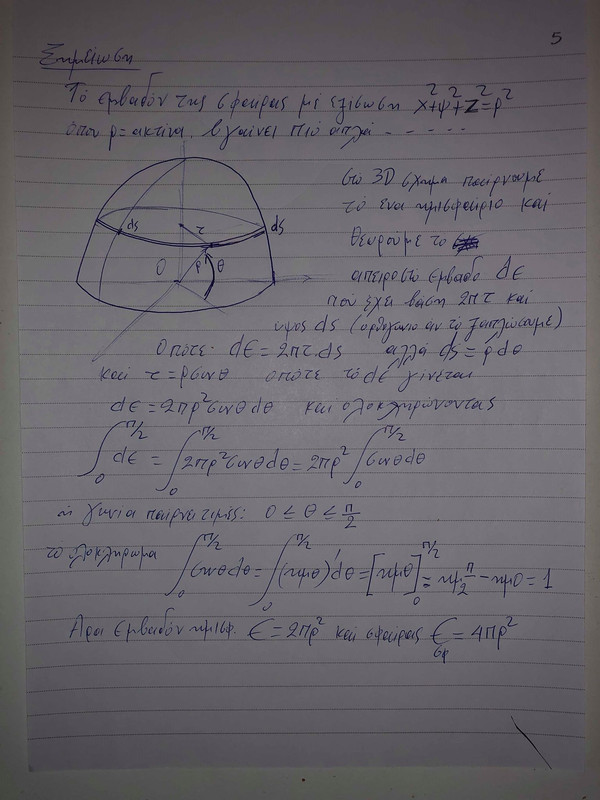 5
Σημείωση
Τό εμβαδόν της σφαίρας με εξίσωση x²+ψ²+z²=ρ²
όπου ρ=ακτίνα. βγαίνει πιό απλά - - - - -
στο 3D σχήμα παίρνουμε
τό ένα ημισφαίριο και
θεωρούμε το
απειροστό εμβαδό dε
πού έχει βάση 2πτ και
υψος ds (ορθογώνιο αν τό ξαπλώσουμε)
ds
τ
ds
O
ρ
θ
Οπότε: dε = 2πτ.ds αλλά ds = ρ dθ
και τ = ρσυνθ οπότε τό dε γίνεται
dε = 2πρ²συνθdθ και ολοκληρώνοντας
∫₀^π/2 dε = ∫₀^π/2 2πρ²συνθdθ = 2πρ² ∫₀^π/2 συνθdθ
η γωνία παίρνει τιμές: 0 ≤ θ ≤ π/2
τό ολοκλήρωμα ∫₀^π/2 συνθdθ = ∫₀^π/2 (ημθ)'dθ = [ημθ]₀^π/2 = ημ π/2 - ημ0 = 1
Αρα εμβαδόν ημισφ. ε = 2πρ² και σφαίρας ε σφ = 4πρ²